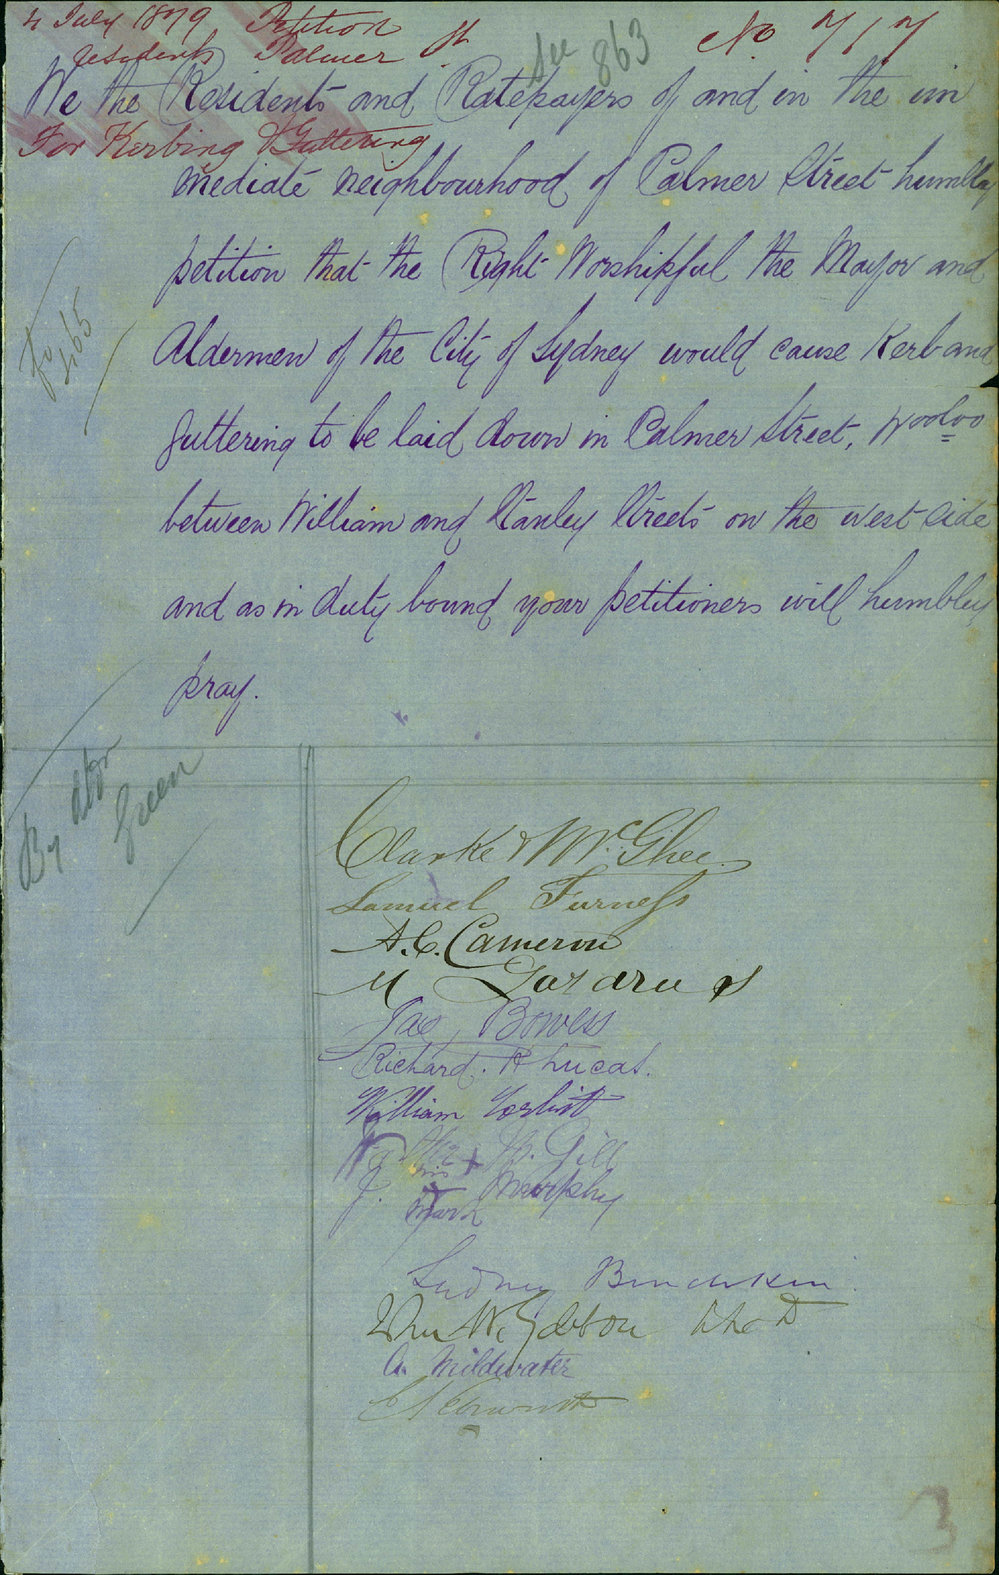 4 July 1879 Petition
residents Palmer St No 717
see 863
We the Residents and Ratepayers of and in the im
For Kerbing & Guttering
mediate neighbourhood of Palmer Street humbley
petition that the Right Worshipful the Mayor and
Aldermen of the City of Sydney would cause Kerb and
Fo 465
guttering to be laid down in Palmer Street, Wooloo
between William and Stanley Streets on the west side
and as in duty bound your petitioners will humbley
pray.
By Ald
Green
Clarke & McGhee
Samuel Furness
A. C. Cameron
M
Jas Bowes
Richard. R Lucas.
William
Mrs + Gill
J. his Murphy
mark
Sydney
Wm W. Gibson
A. Mildwater
3